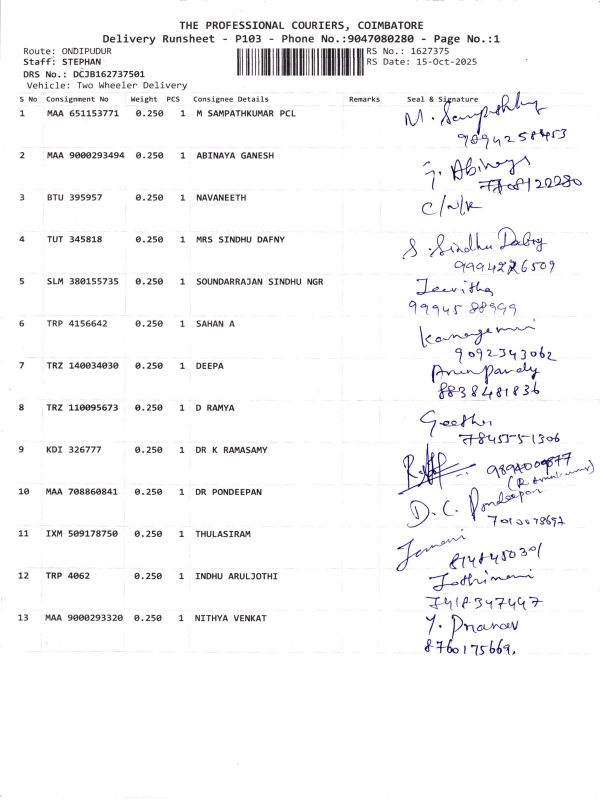 THE PROFESSIONAL COURIERS, COIMBATORE
Delivery Runsheet - P103 - Phone No.:9047080280 - Page No.:1
Route: ONDIPUDUR RS No.: 1627375
Staff: STEPHAN RS Date: 15-Oct-2025
DRS No.: DCJB162737501
Vehicle: Two Wheeler Delivery
S No Consignment No Weight PCS Consignee Details Remarks Seal & Signature
1 MAA 651153771 0.250 1 M SAMPATHKUMAR PCL
9894258453
2 MAA 9000293494 0.250 1 ABINAYA GANESH
3 BTU 395957 0.250 1 NAVANEETH C/N/R
4 TUT 345818 0.250 1 MRS SINDHU DAFNY S. Sindhu Dafny
5 SLM 380155735 0.250 1 SOUNDARRAJAN SINDHU NGR Jeevitha
99945 88999
6 TRP 4156642 0.250 1 SAHAN A
9092343062
7 TRZ 140034030 0.250 1 DEEPA Arun Pandy
8838481836
8 TRZ 110095673 0.250 1 D RAMYA Geetha
7845551306
9 KDI 326777 0.250 1 DR K RAMASAMY
10 MAA 708860841 0.250 1 DR PONDEEPAN D. C. Pondeepan
11 IXM 509178750 0.250 1 THULASIRAM
12 TRP 4062 0.250 1 INDHU ARULJOTHI Jothimani
7418347447
13 MAA 9000293320 0.250 1 NITHYA VENKAT Y. Pranav
8760175669.